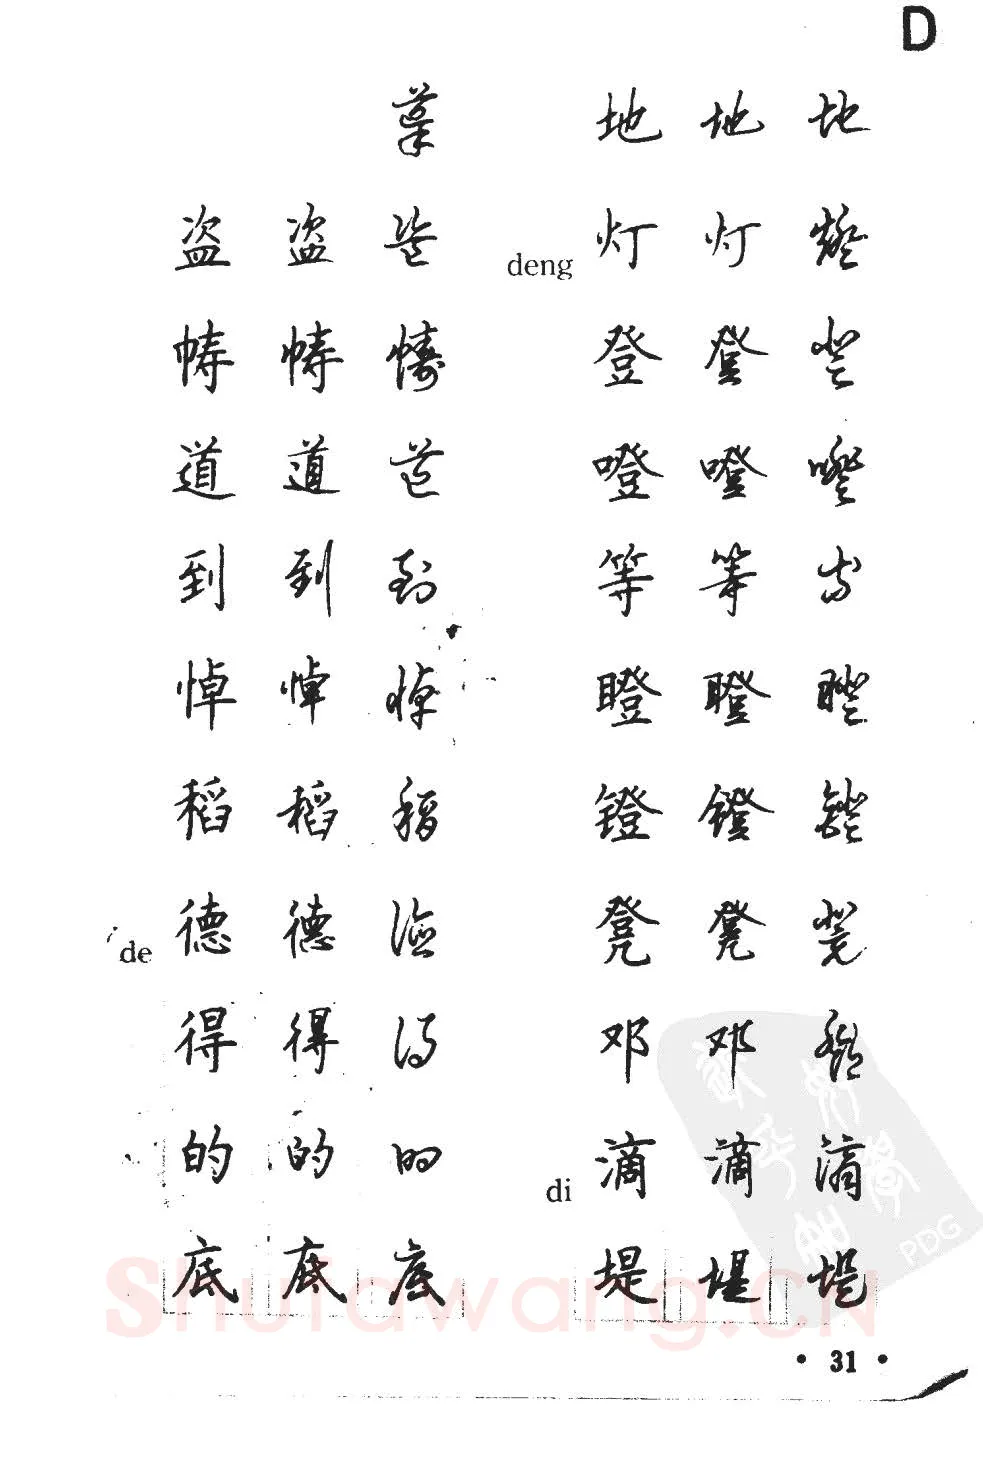 D
葉 地 地 地
盗 盗 盗 deng 灯 灯 燈
帱 帱 幬 登 登 登
道 道 道 噔 噔 噔
到 到 到 等 等 等
悼 悼 悼 瞪 瞪 瞪
稻 稻 稻 镫 镫 鐙
de 德 德 德 凳 凳 凳
得 得 得 邓 邓 鄧
的 的 的 di 滴 滴 滴
底 底 底 堤 堤 堤
• 31 •
Shufawang.CN
PDG